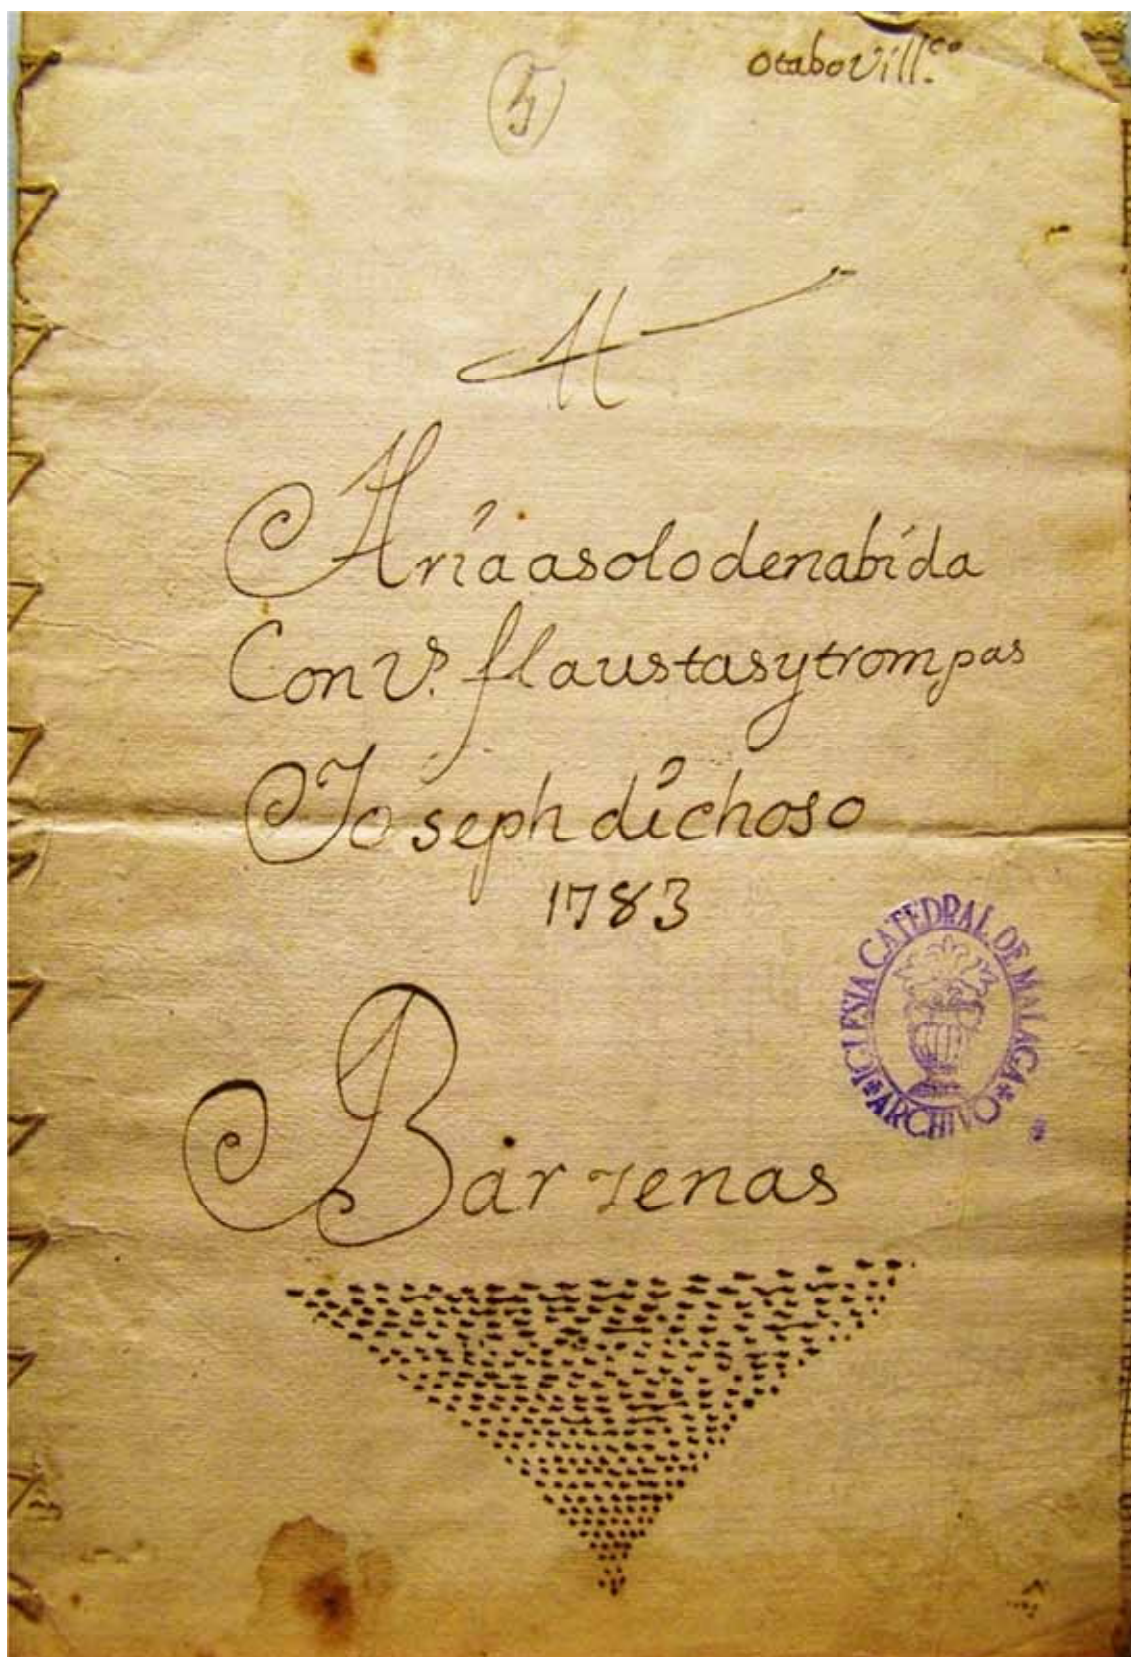 otabo Vill.co
5
Aria a solo de nabida
Con Vs. flaustas y trompas
Joseph dichoso
1783
Barzenas
IGLESIA CATEDRAL DE MALAGA
ARCHIVO